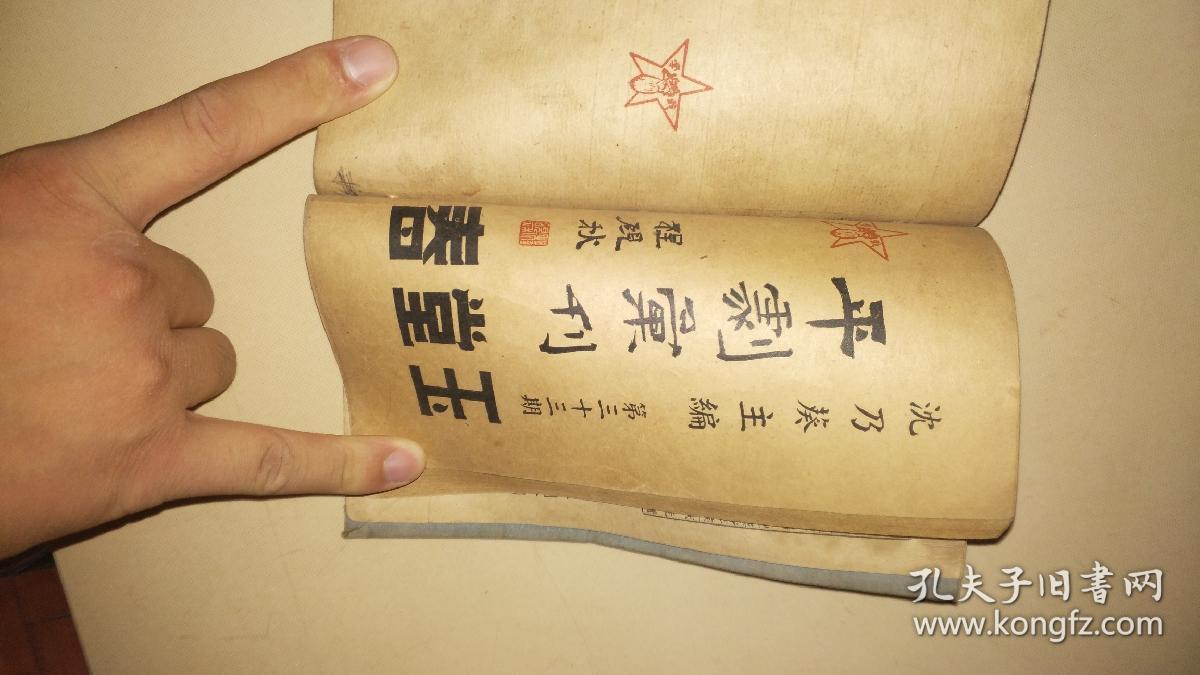 沈乃葵主編
第三十三期
平劇彙刊
程硯秋
玉堂春
孔夫子旧書网
www.kongfz.com